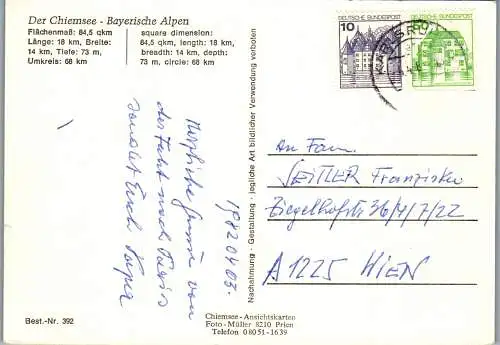 Der Chiemsee - Bayerische Alpen
Flächenmaß: 84,5 qkm
Länge: 18 km, Breite:
14 km, Tiefe: 73 m,
Umkreis: 68 km
square dimension:
84,5 qkm, length: 18 km,
breadth: 14 km, depth:
73 m, circle: 68 km
19820403.
Herzliche Grüsse von
der Fahrt nach Paris
sendet Euch Papa
Best.-Nr. 392
Chiemsee - Ansichtskarten
Foto - Müller 8210 Prien
Telefon 08051-1639
Nachahmung - Gestaltung - jegliche Art bildlicher Verwendung verboten
10
DEUTSCHE BUNDESPOST
DEUTSCHE BUNDESPOST
KARLSRU
An Fam.
SEITLER Franziska
Ziegelhofstr 36/4/7/22
A 1225 WIEN